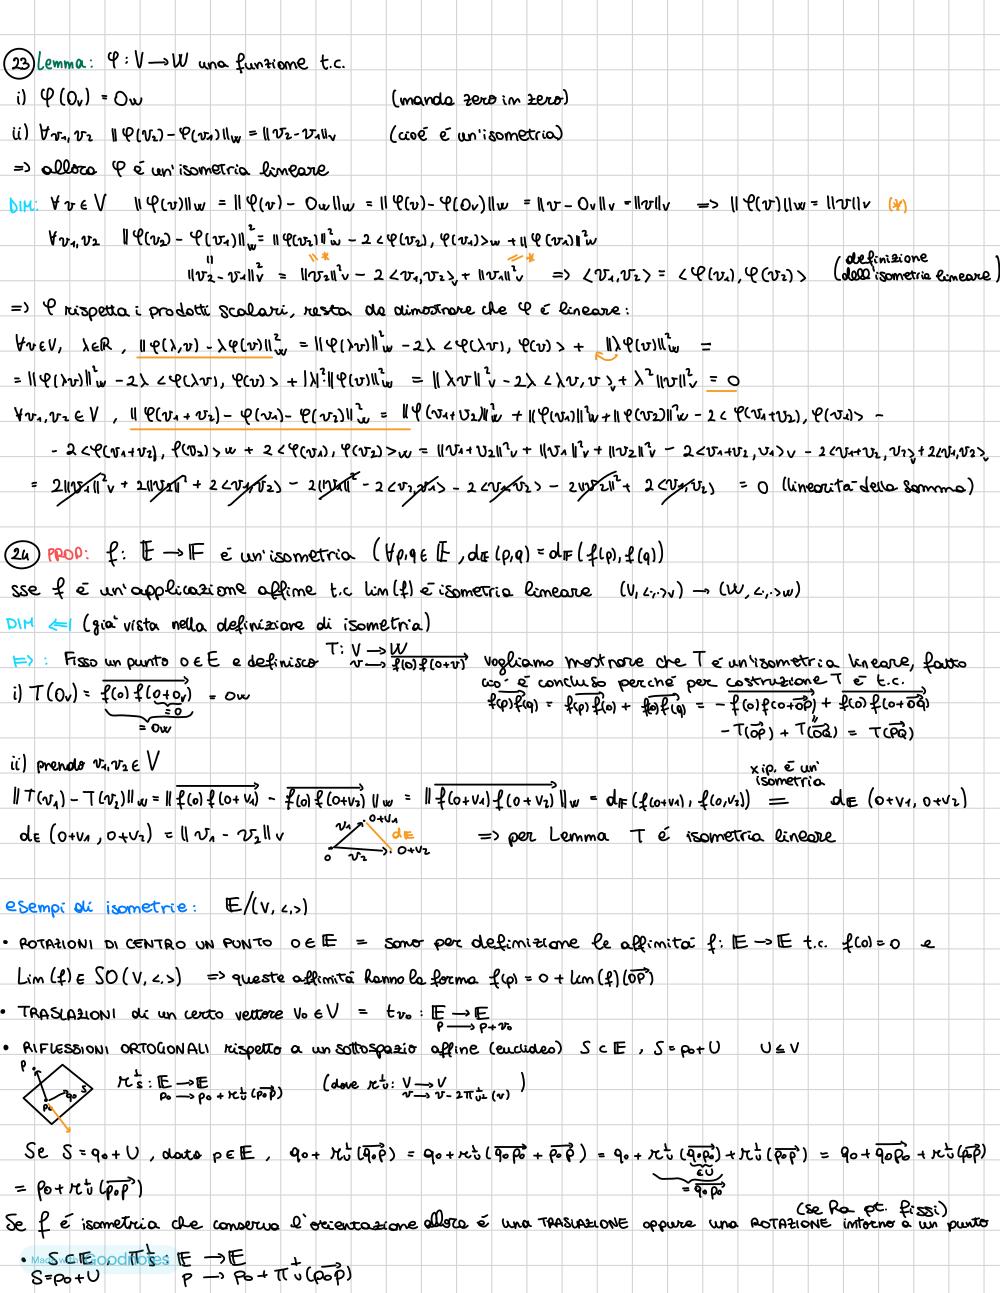 23 Lemma: φ: V → W una funzione t.c.
i) φ(0v) = 0w (manda zero in zero)
ii) ∀v₁,v₂ ||φ(v₂)-φ(v₁)||w = ||v₂-v₁||v (cioé é un'isometria)
=> allora φ é un'isometria lineare
DIM: ∀v∈V ||φ(v)||w = ||φ(v) - 0w||w = ||φ(v)-φ(0v)||w = ||v-0v||v = ||v||v => ||φ(v)||w = ||v||v (*)
∀v₁,v₂ ||φ(v₂) - φ(v₁)||²w = ||φ(v₂)||²w - 2<φ(v₂), φ(v₁)>w + ||φ(v₁)||²w
|| || * = *
||v₂-v₁||²v = ||v₂||²v - 2<v₁,v₂>v + ||v₁||²v => <v₁,v₂> = <φ(v₁),φ(v₂)> (definizione dell'isometria lineare)
=> φ rispetta i prodotti scalari, resta da dimostrare che φ é lineare:
∀v∈V, λ∈R, ||φ(λ,v) - λφ(v)||²w = ||φ(λv)||²w -2λ <φ(λv), φ(v)> + ||λφ(v)||²w =
= ||φ(λv)||²w -2λ <φ(λv), φ(v)> + |λ|²||φ(v)||²w = ||λv||²v -2λ <λv,v>v + λ²||v||²v = 0
∀v₁,v₂∈V, ||φ(v₁+v₂)-φ(v₁)-φ(v₂)||²w = ||φ(v₁+v₂)||²w + ||φ(v₁)||²w + ||φ(v₂)||²w -2<φ(v₁+v₂), φ(v₁)> -
- 2<φ(v₁+v₂), φ(v₂)>w + 2<φ(v₁), φ(v₂)>w = ||v₁+v₂||²v + ||v₁||²v + ||v₂||²v - 2<v₁+v₂,v₁>v - 2<v₁+v₂,v₂>v + 2<v₁,v₂>v
= 2||v₁||²v + 2||v₂||² + 2<v₁,v₂> - 2||v₁||² - 2<v₂,v₁> - 2<v₁,v₂> - 2||v₂||² + 2<v₁,v₂> = 0 (linearità della somma)
24 PROP: f: E → F é un'isometria (∀p,q∈E, dE(p,q) = dF(f(p),f(q))
sse f é un'applicazione affine t.c Lin(f) é isometria lineare (V,<.,.>v) → (W,<.,.>w)
DIM <=| (gia' vista nella definizione di isometria)
=>: Fisso un punto o∈E e definisco T: V → W v → f(o)f(o+v) vogliamo mostrare che T é un'isometria lineare, fatto
cio' é concluso perché per costruzione T é t.c.
i) T(0v) = f(o)f(o+0v) = 0w f(p)f(q) = f(p)f(o) + f(o)f(q) = - f(o)f(o+OP) + f(o)f(o+OQ)
=0
= 0w
||
-T(OP) + T(OQ) = T(PQ)
ii) prendo v₁,v₂∈V
x ip. é un' isometria
||T(v₁)-T(v₂)||w = ||f(o)f(o+v₁) - f(o)f(o+v₂)||w = ||f(o+v₁)f(o+v₂)||w = dF(f(o+v₁), f(o,v₂)) = dE(o+v₁, o+v₂)
dE(o+v₁, o+v₂) = ||v₁ - v₂||v => per Lemma T é isometria lineare
v₁ o+v₁ dE
o v₂ o+v₂
esempi di isometrie: E/(V,<,>)
• ROTAZIONI DI CENTRO UN PUNTO o∈E = sono per definizione le affimitá f: E → E t.c. f(o)=o e
Lim(f) ∈ SO(V,<,>) => queste affimitá hanno la forma f(p) = o + Lim(f)(OP)
• TRASLAZIONI di un certo vettore v₀∈V = tv₀: E → E
p → p+v₀
• RIFLESSIONI ORTOGONALI rispetto a un sottospazio affine (euclideo) S⊂E, S=p₀+U U≤V
p p₀ q₀ S
r⊥s: E → E (dove r⊥u: V → V )
p₀ → p₀ + r⊥u(p₀p) v → v - 2π⊥u⊥(v)
Se S = q₀+U, dato p∈E, q₀ + r⊥u(q₀p) = q₀ + r⊥u(q₀p₀ + p₀p) = q₀ + r⊥u(q₀p₀) + r⊥u(p₀p) = q₀ + q₀p₀ + r⊥u(p₀p)
∈U
= q₀p₀
= p₀ + r⊥u(p₀p)
(se ha pt. fissi)
Se f é isometria che conserva l'orientazione allora é una TRASLAZIONE oppure una ROTAZIONE intorno a un punto
• S⊂E, π⊥s: E → E
Made with Goodnotes
S=p₀+U p → p₀ + π⊥u(p₀p)